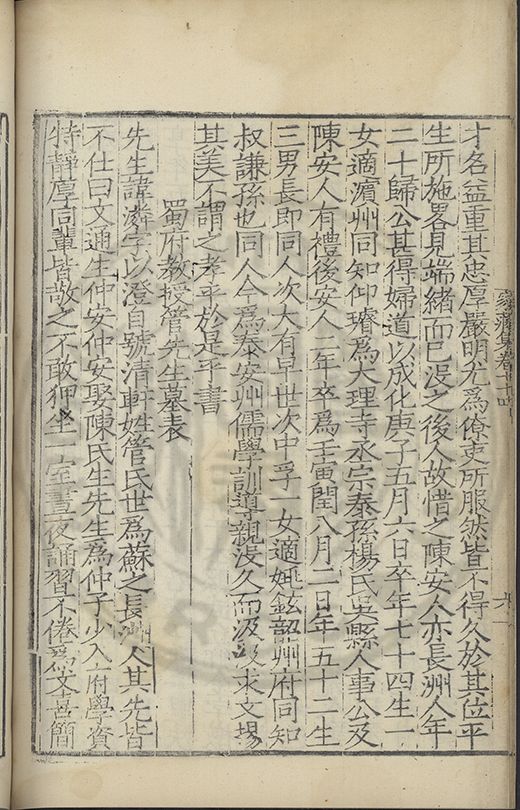 才名益重其忠厚嚴明尤爲僚吏所服然皆不得久於其位平
生所施畧見端緒而已没之後人故惜之陳安人亦長洲人年
二十歸公甚得婦道以成化庚子五月六日卒年七十四生一
女適濵州同知仰璿爲大理寺丞宗泰孫楊氏吳縣人事公及
陳安人有禮後安人二年卒爲壬寅閏八月二日年五十二生
三男長即同人次大有早世次中孚一女適姚鉉韶州府同知
叔謙孫也同人今爲泰安州儒學訓導親没久而汲汲求文埸
其美不謂之孝乎於是乎書
蜀府教授管先生墓表
先生諱澣字以澄自號清軒姓管氏世爲蘇之長洲人其先皆
不仕曰文通生仲安仲安娶陳氏生先生爲仲子少入府學資
特靜厚同輩皆敬之不敢狎坐一室晝夜誦習不倦爲文甚簡
家藏集卷七十四